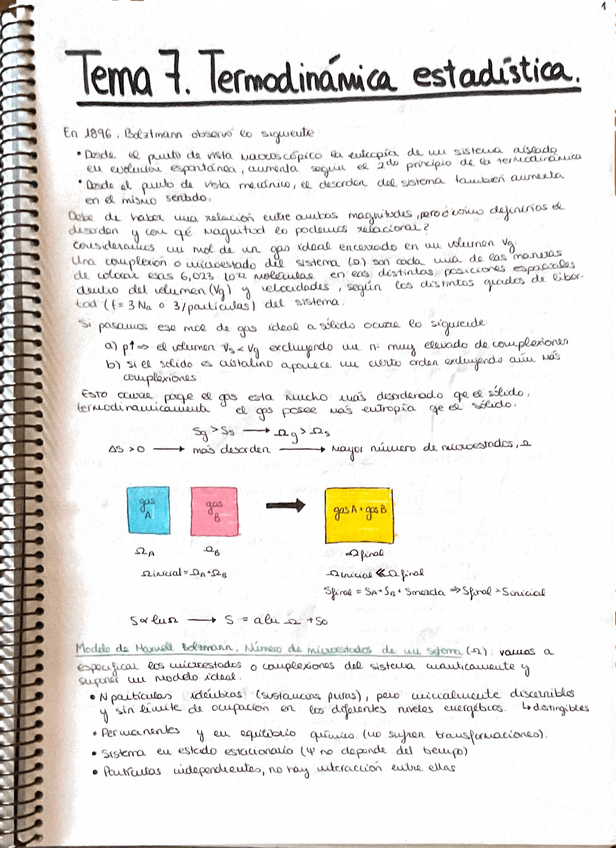 1
Tema 7. Termodinámica estadística.
En 1896, Bolztmann observó lo siguiente
• Desde el punto de vista macroscópico la entropía de un sistema aislado
en evolución espontánea, aumenta según el 2do principio de la termodinámica
• Desde el punto de vista mecánico, el desorden del sistema también aumenta
en el mismo sentido.
Debe de haber una relación entre ambas magnitudes, pero ¿cómo definirías el
desorden y con qé magnitud lo podemos relacionar?
Consideramos un mol de un gas ideal encerrado en un volumen Vg.
Una complexión o microestado del sistema (Ω) son cada una de las maneras
de colocar esas 6,023 10²² moléculas en las distintas posiciones espaciales
dentro del volumen (Vg) y velocidades, según los distintos grados de liber-
tad (f = 3 Na o 3/partículas) del sistema.
Si pasamos ese mol de gas ideal a sólido ocurre lo siguiente
a) p↑ ⇒ el volumen Vs < Vg excluyendo un nº muy elevado de complexiones
b) si el sólido es cristalino aparece un cierto orden excluyendo aún más
complexiones
Esto ocurre porqe el gas esta mucho más desordenado qe el sólido,
termodinamicamente el gas posee más entropía qe el sólido.
Sg > Ss → Ωg > Ωs
ΔS > 0 → más desorden → Mayor número de microestados, Ω
gas A
gas B
gas A + gas B
ΩA
ΩB
Ω final
Ω inicial = ΩA · ΩB
Ω inicial ≪ Ω final
Sfinal = SA + SB + Smezcla ⇒ Sfinal > Sinicial
S α lnΩ → S = a ln Ω + S0
Modelo de Maxwell Bolzmann. Número de microestados de un sistema (Ω): vamos a
especificar los microestados o complexiones del sistema cuanticamente y
suponer un modelo ideal.
• N partículas idénticas (sustancias puras), pero inicialmente discernibles
y sin límite de ocupación en los diferentes niveles energéticos. ↳ distingibles
• Permanentes y en equilibrio químico (no sufren transformaciones).
• Sistema en estado estacionario (Ψ no depende del tiempo)
• Partículas independientes, no hay interacción entre ellas